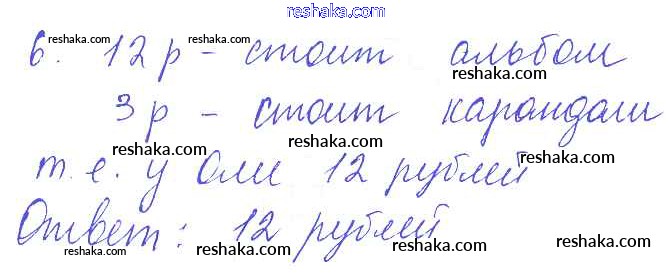 reshaka.com
6. 12 р - стоит альбом
reshaka.com reshaka.com reshaka.com
3 р - стоит карандаш
reshaka.com reshaka.com reshaka.com
т.е. у Оли 12 рублей
reshaka.com reshaka.com
Ответ: 12 рублей
reshaka.com reshaka.com